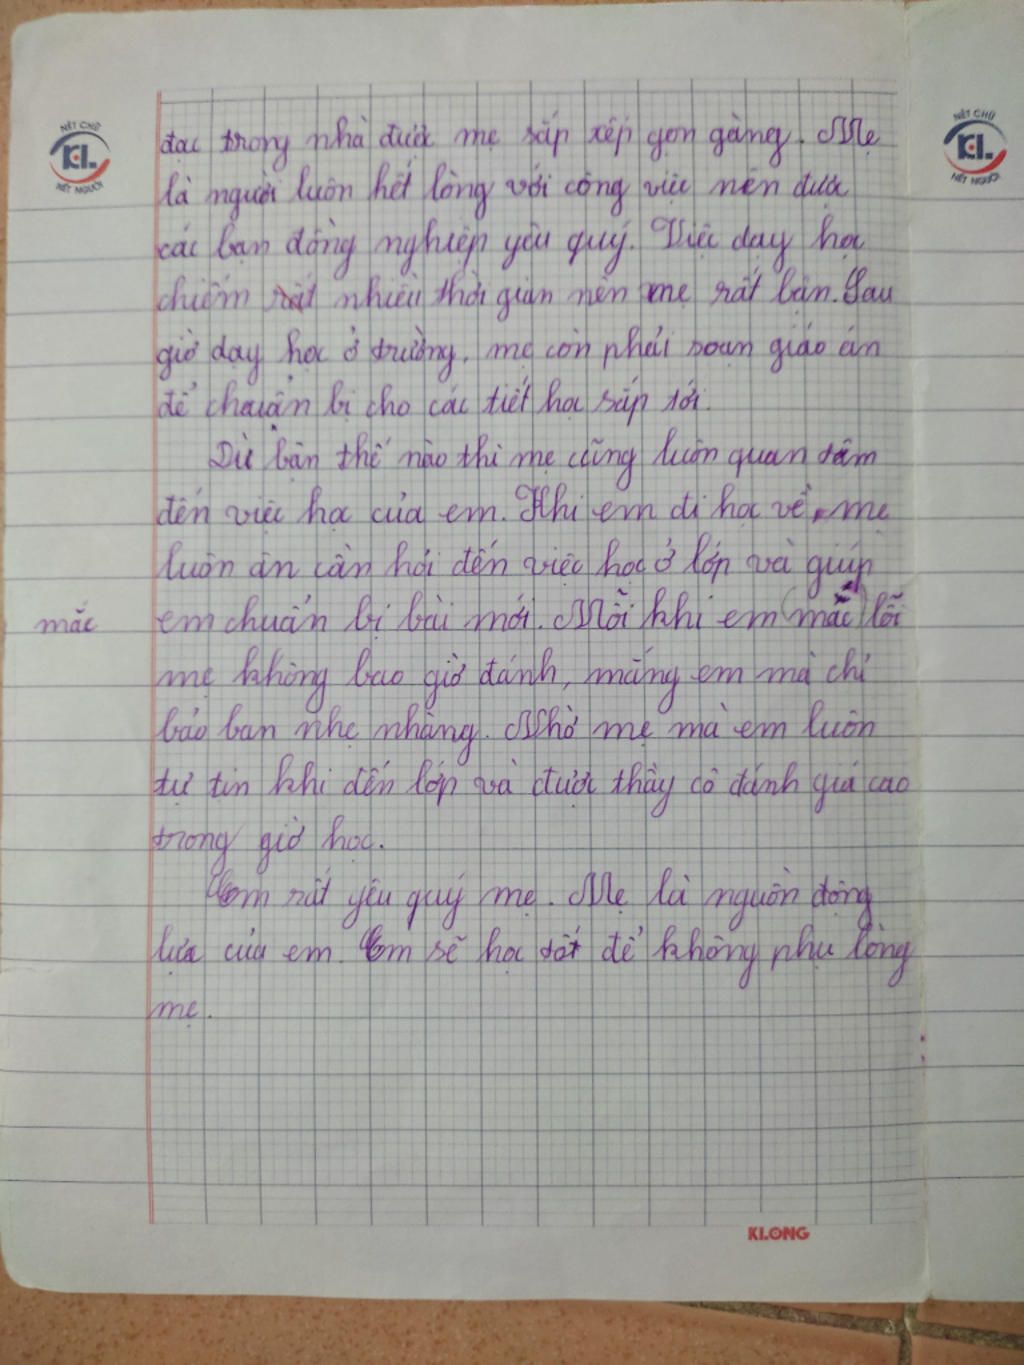 NÉT CHỮ
KL
NẾT NGƯỜI
NÉT CHỮ
KL
NẾT NGƯỜI
đạc trong nhà được mẹ sắp xếp gọn gàng. Mẹ
là người luôn hết lòng với công việc nên được
các bạn đồng nghiệp yêu quý. Việc dạy học
chiếm rất nhiều thời gian nên mẹ rất bận. Sau
giờ dạy học ở trường, mẹ còn phải soạn giáo án
để chuẩn bị cho các tiết học sắp tới.
Dù bận thế nào thì mẹ cũng luôn quan tâm
đến việc học của em. Khi em đi học về, mẹ
luôn ân cần hỏi đến việc học ở lớp và giúp
em chuẩn bị bài mới. Mỗi khi em (mắc) lỗi
mắc
mẹ không bao giờ đánh, mắng em mà chỉ
bảo ban nhẹ nhàng. Nhờ mẹ mà em luôn
tự tin khi đến lớp và được thầy cô đánh giá cao
trong giờ học.
Em rất yêu quý mẹ. Mẹ là nguồn động
lực của em. Em sẽ học tốt để không phụ lòng
mẹ.
KLONG